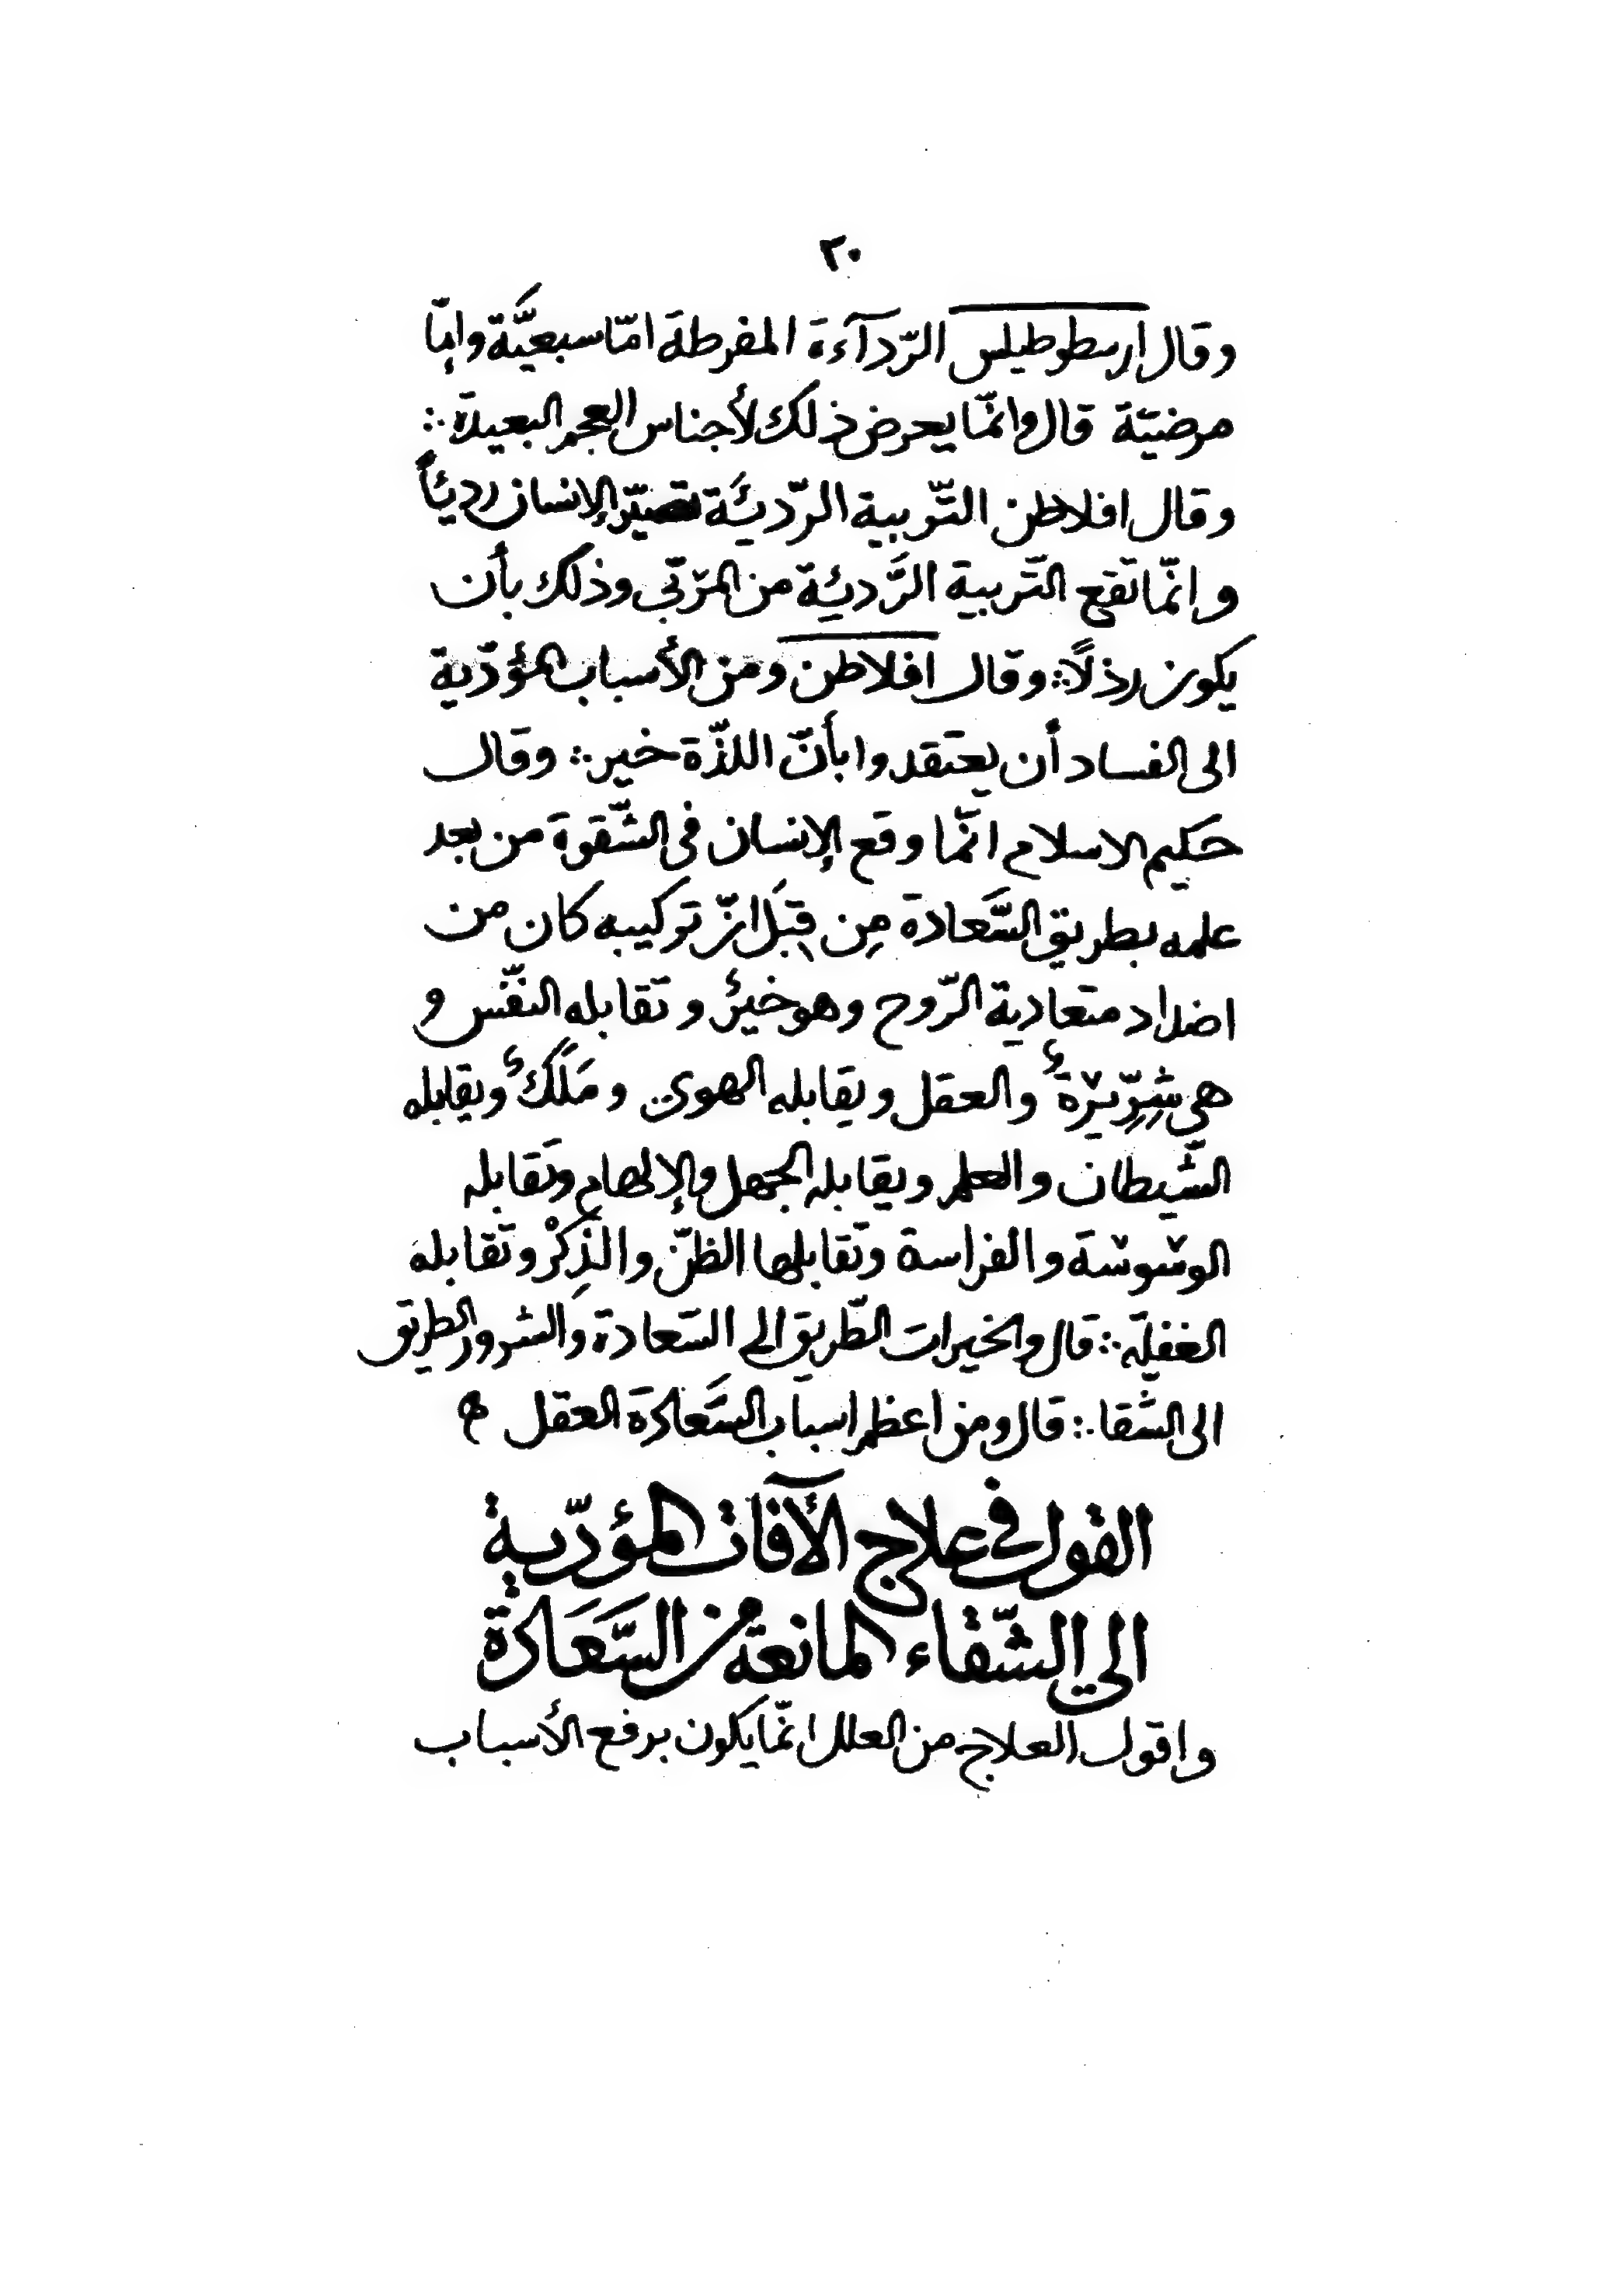 ٢٠
وقال ارسطوطيلس الرّدآءة المفرطة امّا سبعيَّة وإمّا
مرضيّة قال وانّما يعرض ذلك لأجناس العجم البعيدة ∴
وقال افلاطن التّربية الرّديئَة تصيّر الإنسان رديئاً
و انّما تقع التّربية الرَّديئة من المربّي وذلك بأن
يكون رذلاً ∴ وقال افلاطن ومن الأسباب المؤدّية
الى الفساد أن يعتقدوا بأنّ اللذّة خير ∴ وقال
حكيم الاسلام انّما وقع الإنسان فى الشّقوة من بعد
علمه بطريق السَّعادة مِن قِبَل انّ تركيبه كان من
اضداد متعادية الرّوح وهو خيرٌ و تقابله النّفس و
هي شِرِّيرة والعقل ويقابله الهوى و مَلَكٌ ويقابله
الشّيطان والعلم ويقابله الجهل والإلهام وتقابله
الوسوسة والفراسة وتقابلها الظنّ والذِكْر وتقابله
الغفلة ∴ قال والخيرات الطّريق الى السّعادة والشرور الطريق
الى الشّقا ∴ قال ومن اعظم اسباب السَّعادة العقل ه
القول في علاج الآفات المؤدّية
الي الشّقاء المانعة من السَّعَادة
واقول العلاج من العلل انّما يكون برفع الأسباب